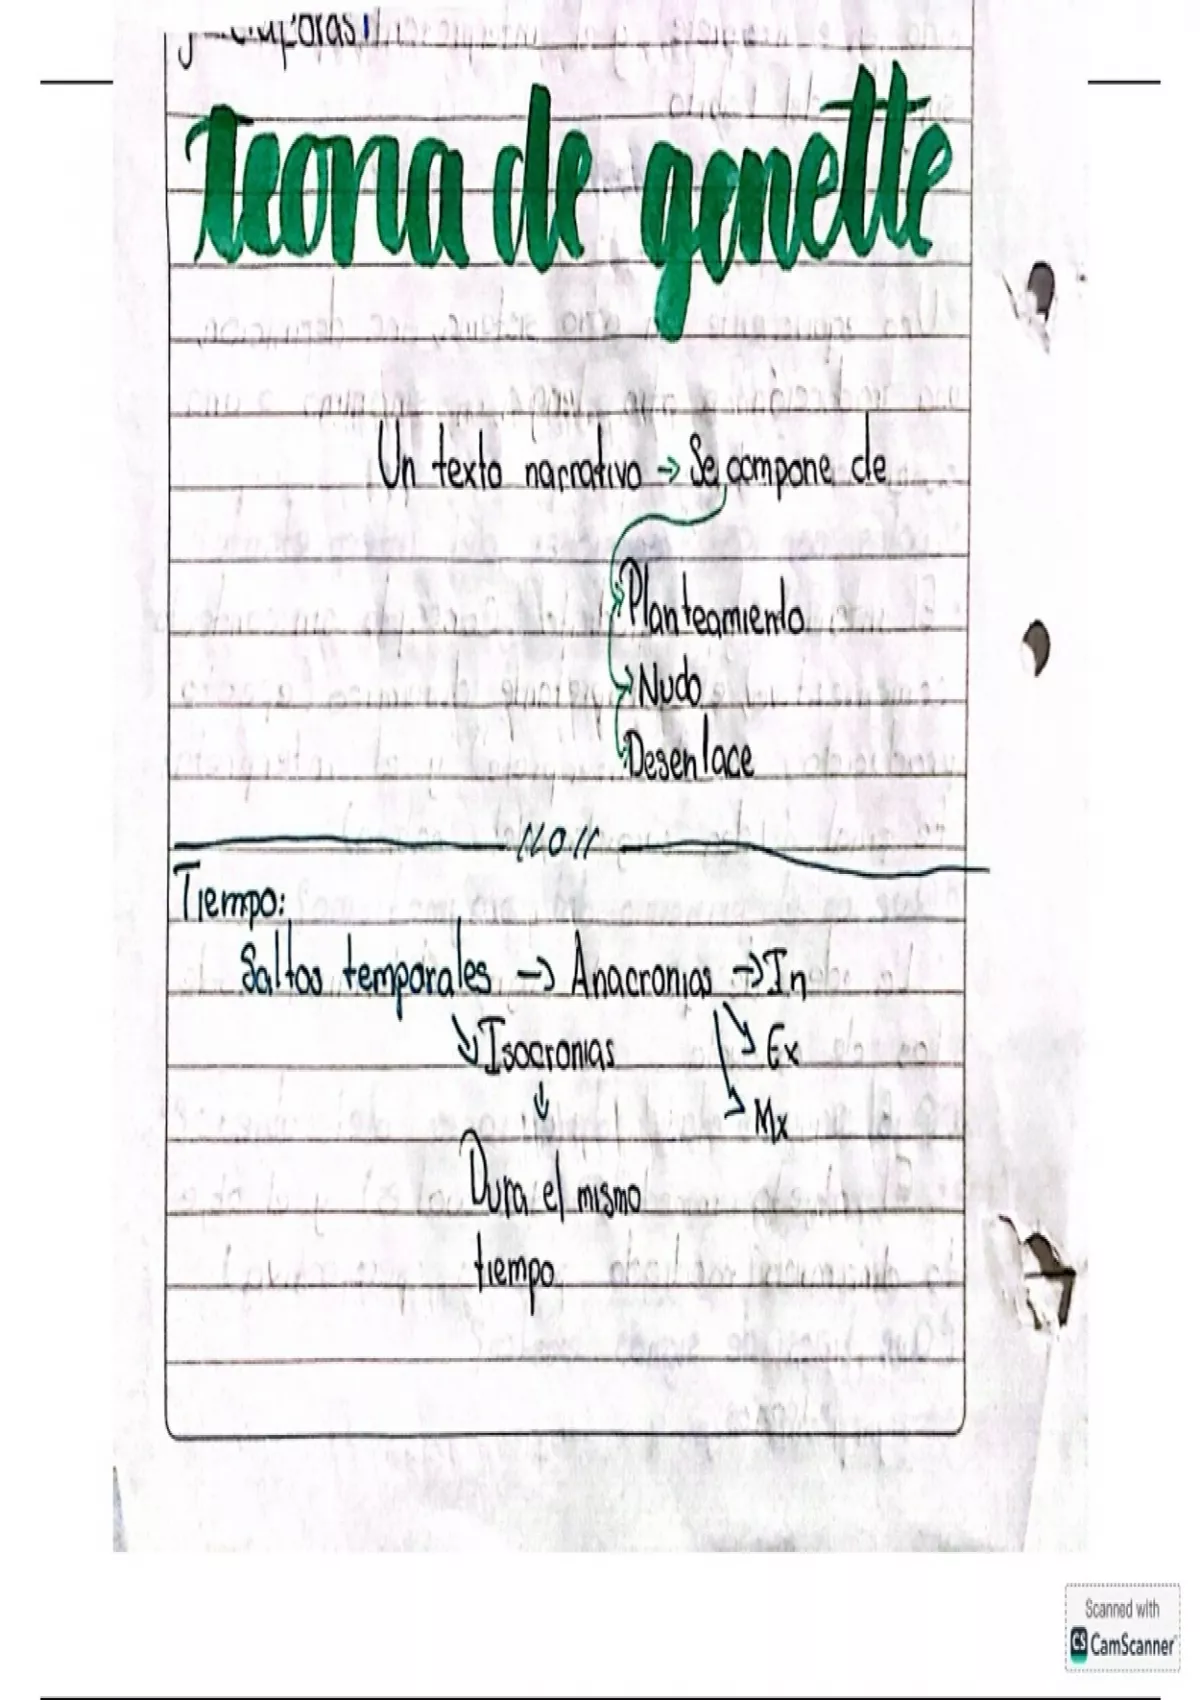 Teoria de genette
Un texto narrativo → Se compone de
Planteamiento
→ Nudo
Desenlace
11011
Tiempo:
Saltos temporales → Anacronias → In
Isocronias
Ex
↓
Mx
Dura el mismo
tiempo
Scanned with
CS CamScanner